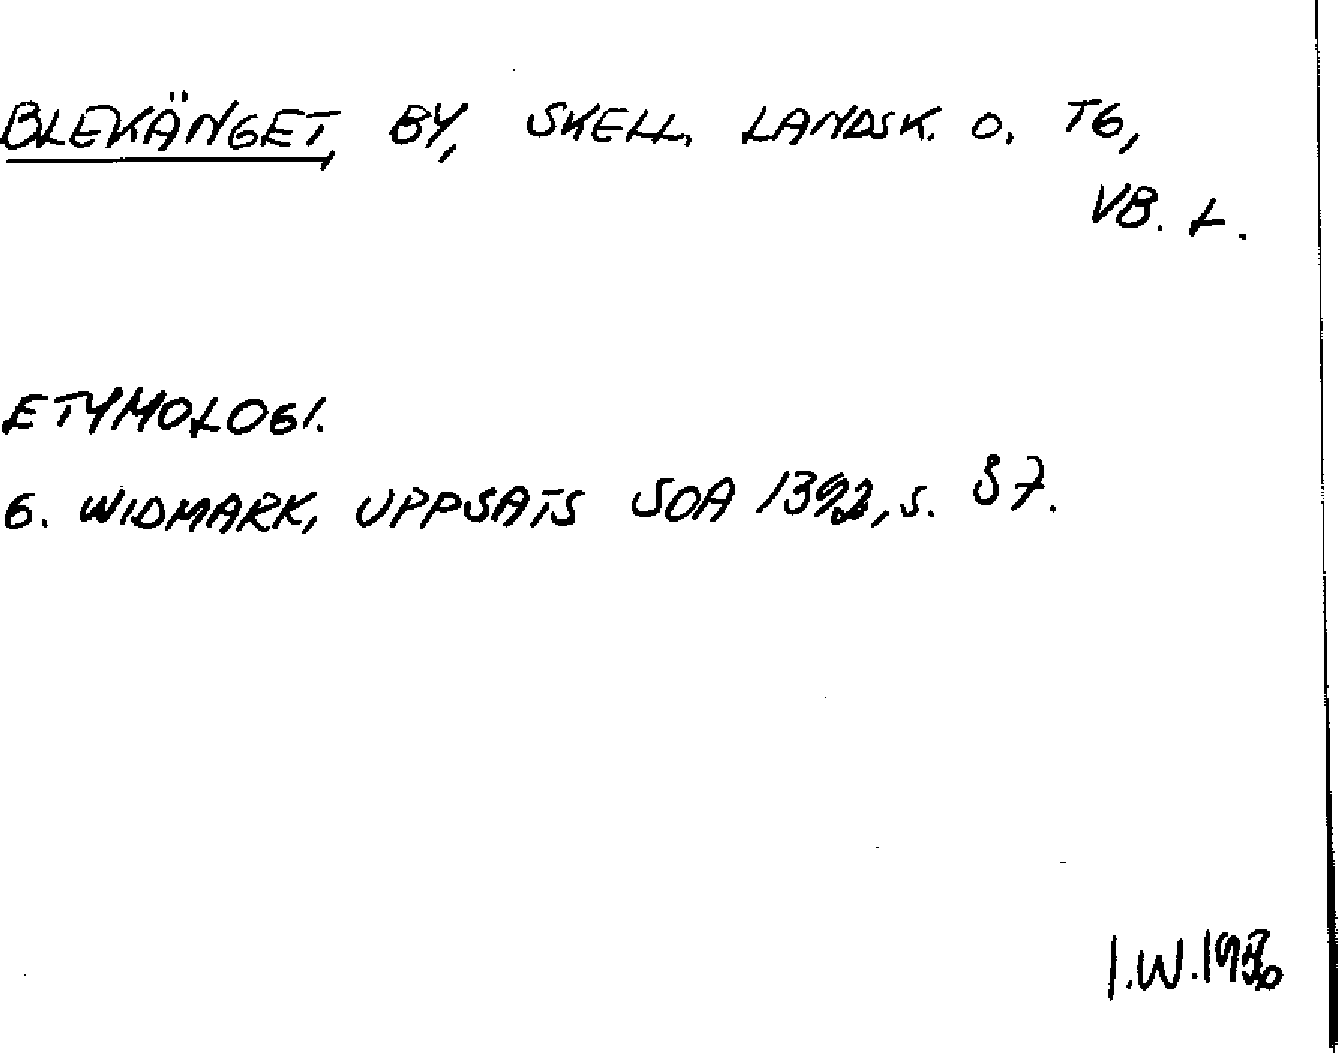 BLEKÄNGET, BY, SKELL. LANDSK. O. TG,
VB. L.
ETYMOLOGI.
G. WIDMARK, UPPSATS SOA 1392, S. 87.
I.W.